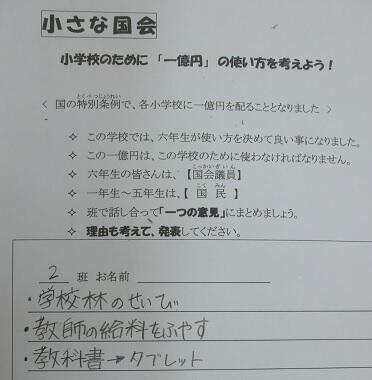 小さな国会
小学校のために 「一億円」 の使い方を考えよう!
< 国の特別条例で、各小学校に一億円を配ることとなりました >
とくべつじょうれい
✧ この学校では、六年生が使い方を決めて良い事になりました。
✧ この一億円は、この学校のために使わなければなりません。
✧ 六年生の皆さんは、【国会議員】
こっかいぎいん
✧ 一年生〜五年生は、【 国 民 】
こく みん
✧ 班で話し合って「一つの意見」にまとめましょう。
✧ 理由も考えて、発表してください。
2 班 お名前
・学校林のせいび
・教師の給料をふやす
・教科書→タブレット